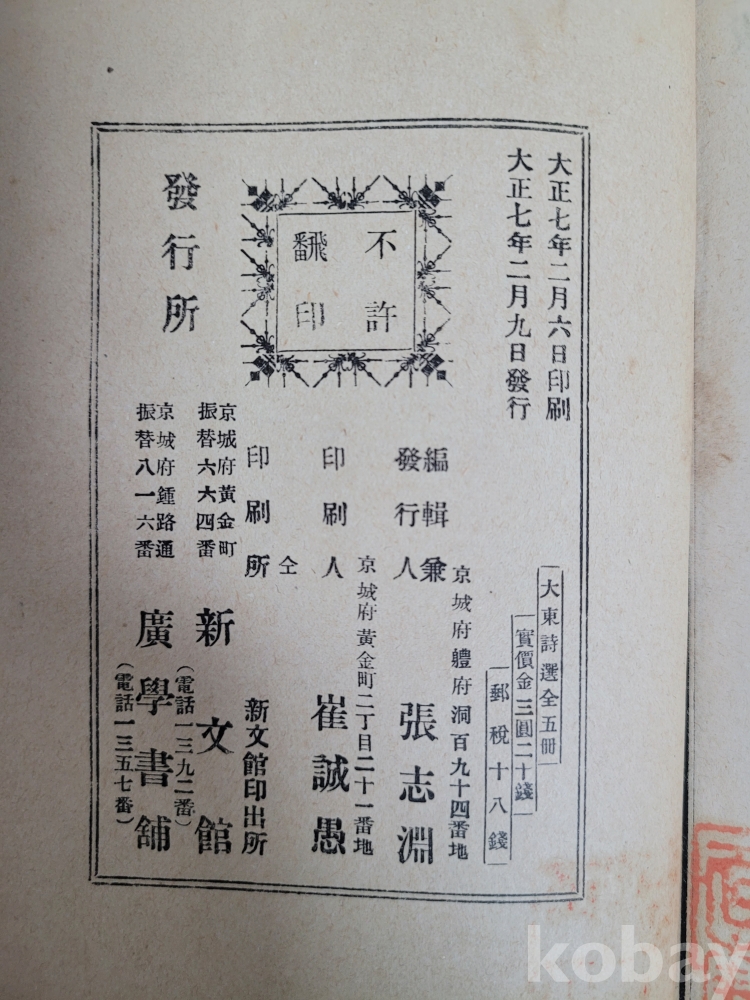 大正七年二月六日印刷
大正七年二月九日發行
大東詩選全五冊
實價金三圓二十錢
郵稅十八錢
不許
飜印
編輯兼
發行人
京城府軆府洞百九十四番地
張志淵
印刷人
京城府黃金町二丁目二十一番地
崔誠愚
印刷所
仝
新文館印出所
發行所
京城府黃金町
振替六六四番
新文館
(電話一三九二番)
京城府鍾路通
振替八一六番
廣學書舖
(電話一三五七番)
kobay